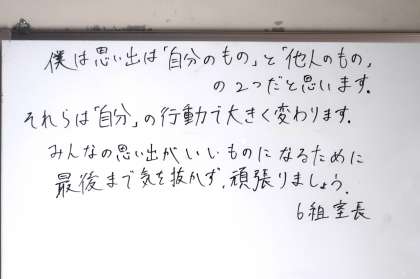 僕は思い出は「自分のもの」と「他人のもの」
の2つだと思います.
それらは「自分」の行動で大きく変わります.
みんなの思い出がいいものになるために
最後まで気を抜かず,頑張りましょう.
6組室長